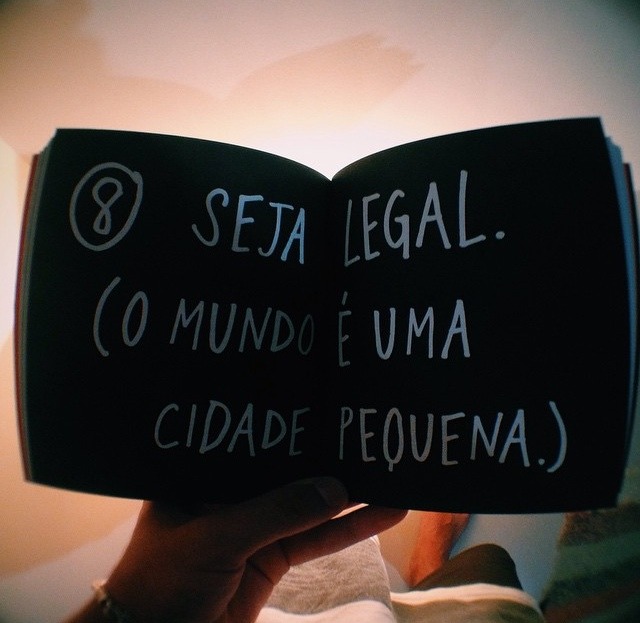 8 SEJA LEGAL.
(O MUNDO É UMA
CIDADE PEQUENA.)